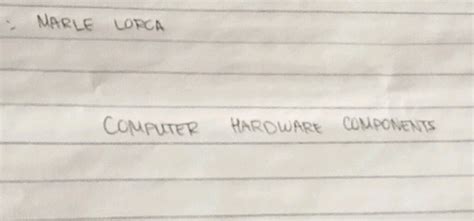 : MARLE LORCA
COMPUTER HARDWARE COMPONENTS